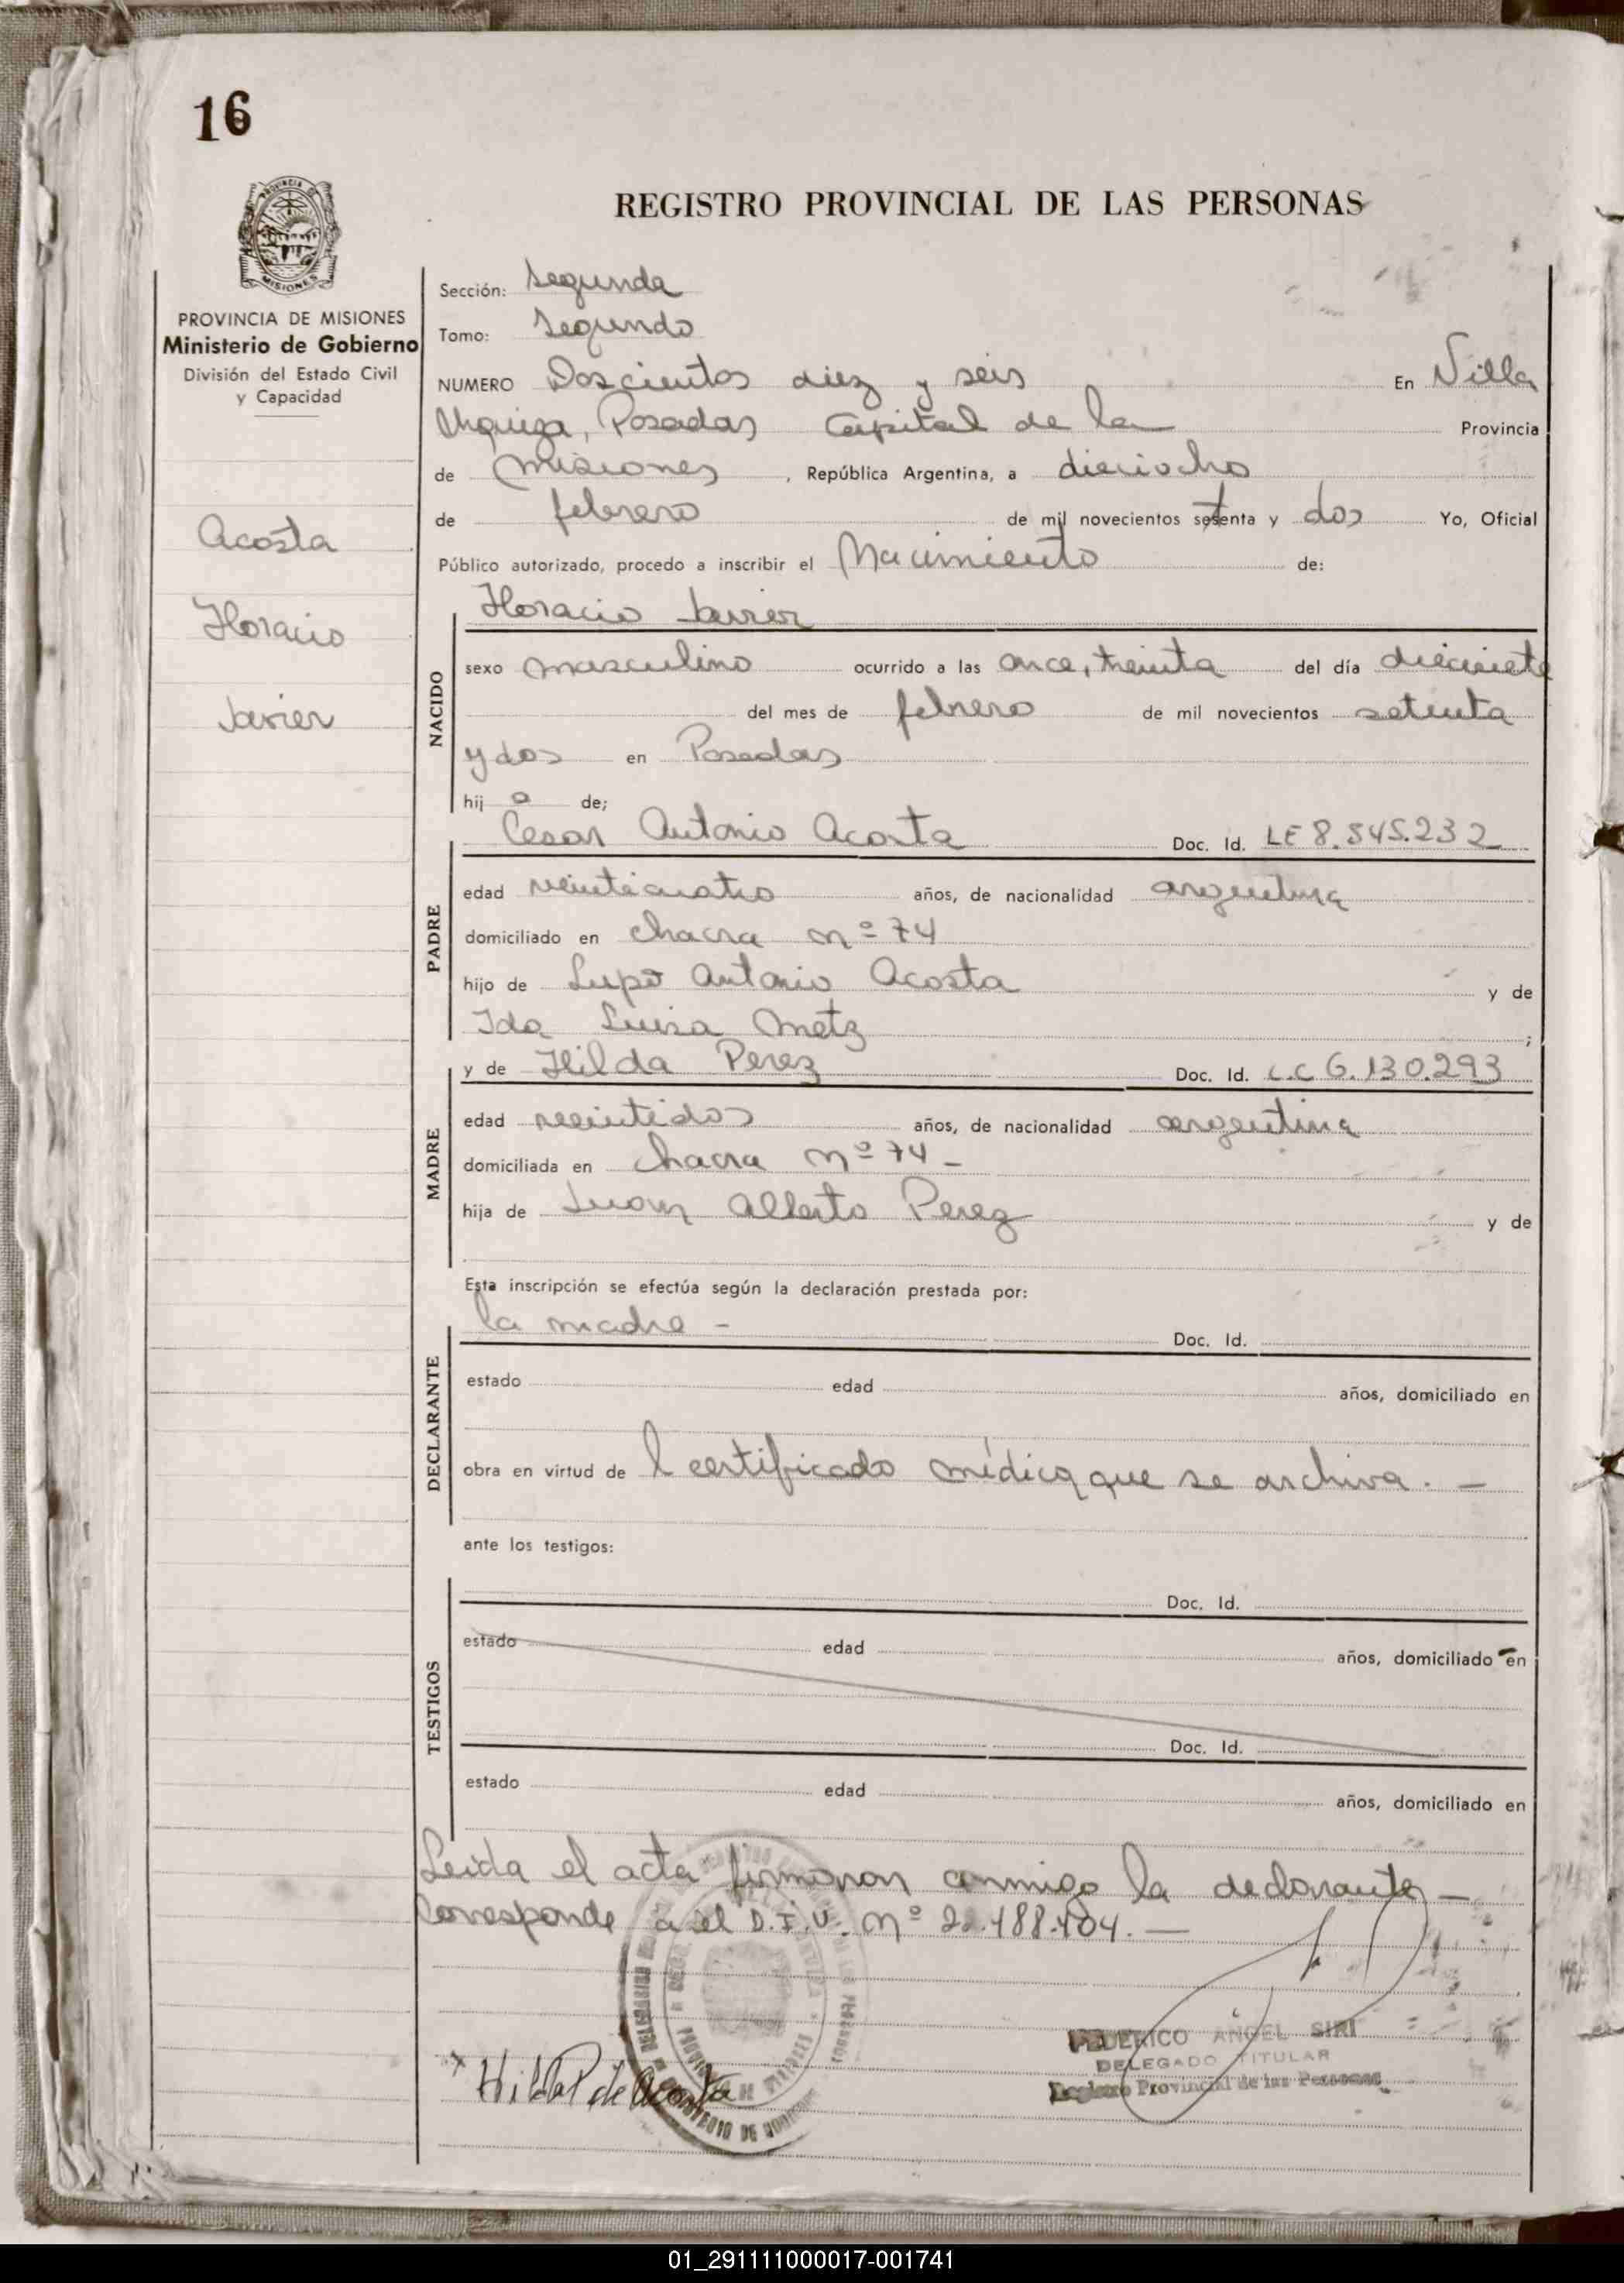 16
REGISTRO PROVINCIAL DE LAS PERSONAS
PROVINCIA DE MISIONES
Ministerio de Gobierno
División del Estado Civil
y Capacidad
Acosta
Horacio
Javier
Sección: Segunda
Tomo: Segundo
NUMERO Doscientos diez y seis En Villa
Urquiza, Posadas Capital de la Provincia
de Misiones, República Argentina, a dieciocho
de febrero de mil novecientos setenta y dos Yo, Oficial
Público autorizado, procedo a inscribir el Nacimiento de:
Horacio Javier
NACIDO
sexo masculino ocurrido a las once, treinta del día diecisiete
del mes de febrero de mil novecientos setenta
y dos en Posadas
hij o de;
Cesar Antonio Acosta Doc. Id. LE 8.545.232
PADRE
edad veinticuatro años, de nacionalidad argentina
domiciliado en chacra nº 74
hijo de Lupo Antonio Acosta y de
Ida Luisa Metz ;
y de Hilda Perez Doc. Id. L.C 6.130.293
MADRE
edad veintidos años, de nacionalidad argentina
domiciliada en chacra nº 74 -
hija de Juan Alberto Perez y de
Esta inscripción se efectúa según la declaración prestada por:
la madre - Doc. Id.
DECLARANTE
estado edad años, domiciliado en
obra en virtud de l certificado médico, que se archiva. -
ante los testigos:
Doc. Id.
TESTIGOS
estado edad años, domiciliado en
Doc. Id.
estado edad años, domiciliado en
Leida el acta firmaron conmigo la declarante -
Corresponde a el D.I.U. nº 22.488.404. -
x Hilda P de Acosta
FEDERICO ANGEL SIRI
DELEGADO TITULAR
Registro Provincial de las Personas
01_291111000017-001741